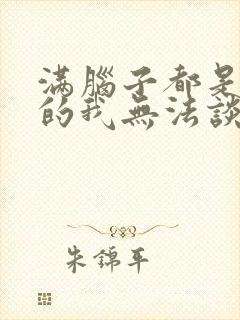 滿腦子都是
的我無法談
朱錦平